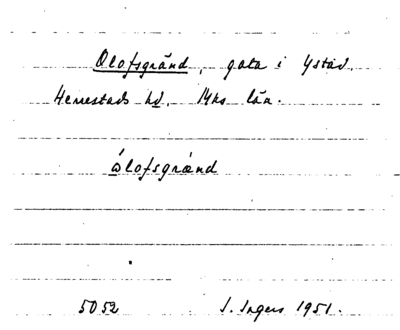 Olofsgränd, gata i Ystad.
Herrestads hd. Mhs län.
ólofsgrænd
5052 I. Ingers 1951.